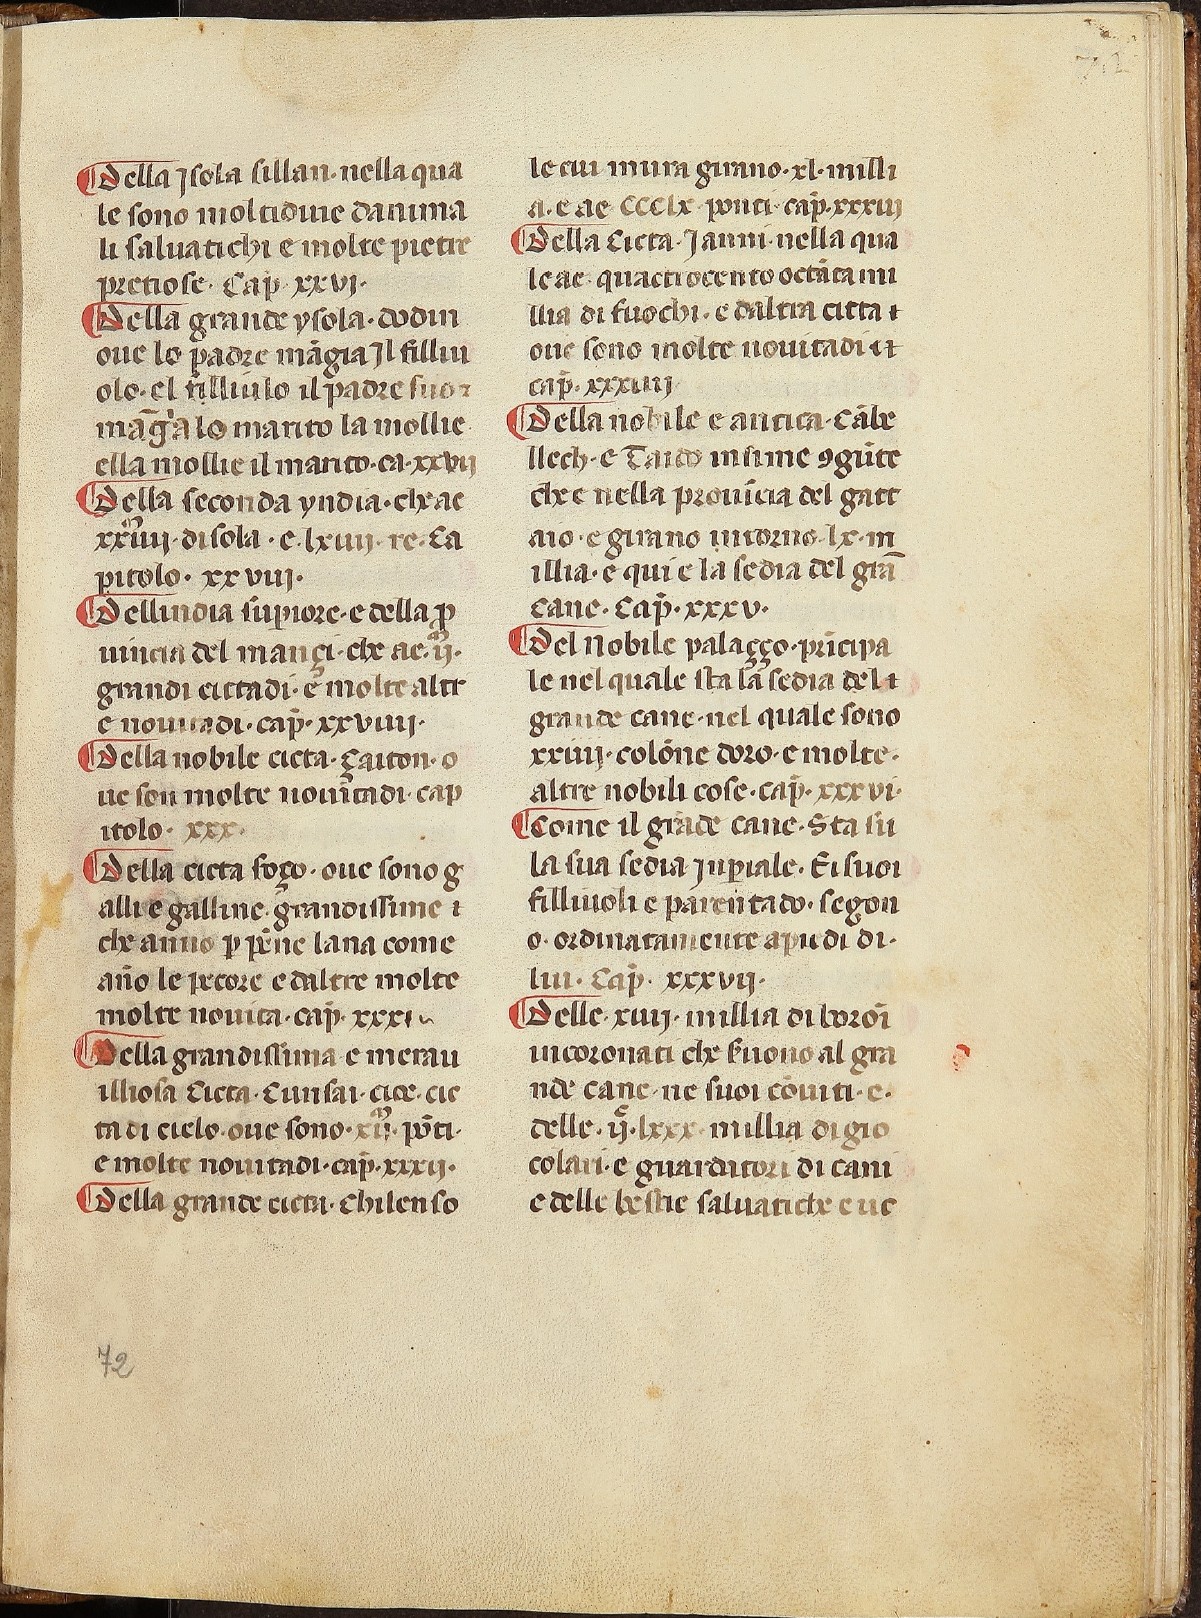 72
Della jsola sillan· nella qua
le sono moltidine danima
li saluatichi e molte pietre
pretiose· Cap̄· xxvj·
Della grande ysola· dodin
oue lo padre māgia jl filliu
olo· el filliuolo il padre suo ⁊
māgia lo marito la mollie
ella mollie il marito· ca· xxvij
Della seconda yndia· che ae
xxiiijᵐ· disola· e· lxiiij· re· Ca
pitolo· xxviij·
Dellindia supiore· e della ꝓ
uincia del mançi· che ae· ijᵐ·
grandi cittadi· e molte altr
e nouitadi· cap̄· xxviiij·
Della nobile cicta· Çaiton· o
ue son molte nouitadi· cap
itolo· xxx·
Della cicta foço· oue sono g
alli e galline grandissime ⁊
che anno ꝑ pēne lana come
āno le pecore e daltre molte
molte nouita· cap̄· xxxj
Della grandissima e merau
illiosa Cicta· Cunsai· cioe· cic
ta di cielo· oue sono· xijᵐ· pōti·
e molte nouitadi· cap̄· xxxij·
Della grande cicta· Chilenso
le cui mura girano· xl· milli
a· e ae CCCLx· ponti· cap̄· xxxiij
Della Cicta· Janni· nella qua
le ae· quactrocento octāta mi
llia di fuochi· e daltra citta ⁊
oue sono molte nouitadi
cap̄· xxxiiij
Della nobile e antica· Cābe
llech· e Taido insime ꝯgiūte
che e nella prouīcia del gatt
aio· e girano intorno· lx· m
illia· e qui e la sedia del grā
Cane· Cap̄· xxxv·
Del Nobile palaçço· prīcipa
le nel quale sta la sedia del ⁊
grande cane· nel quale sono
xxiiij· colōne doro· e molte·
altre nobili cose· cap̄· xxxvi·
Come il grāde cane· Sta su
la sua sedia jnꝑiale· Ei suoi
filliuoli e parentado· segon
o· ordinatamente apie di di·
lui· Cap̄· xxxvij·
Delle· xiiij· millia di borōi
incoronati che seruono al gra
nde cane· ne suoi cōuiti· e·
delle· ij· lxxx· millia di gio
colari· e guarditori di cani
e delle bestie saluatiche e uc
72